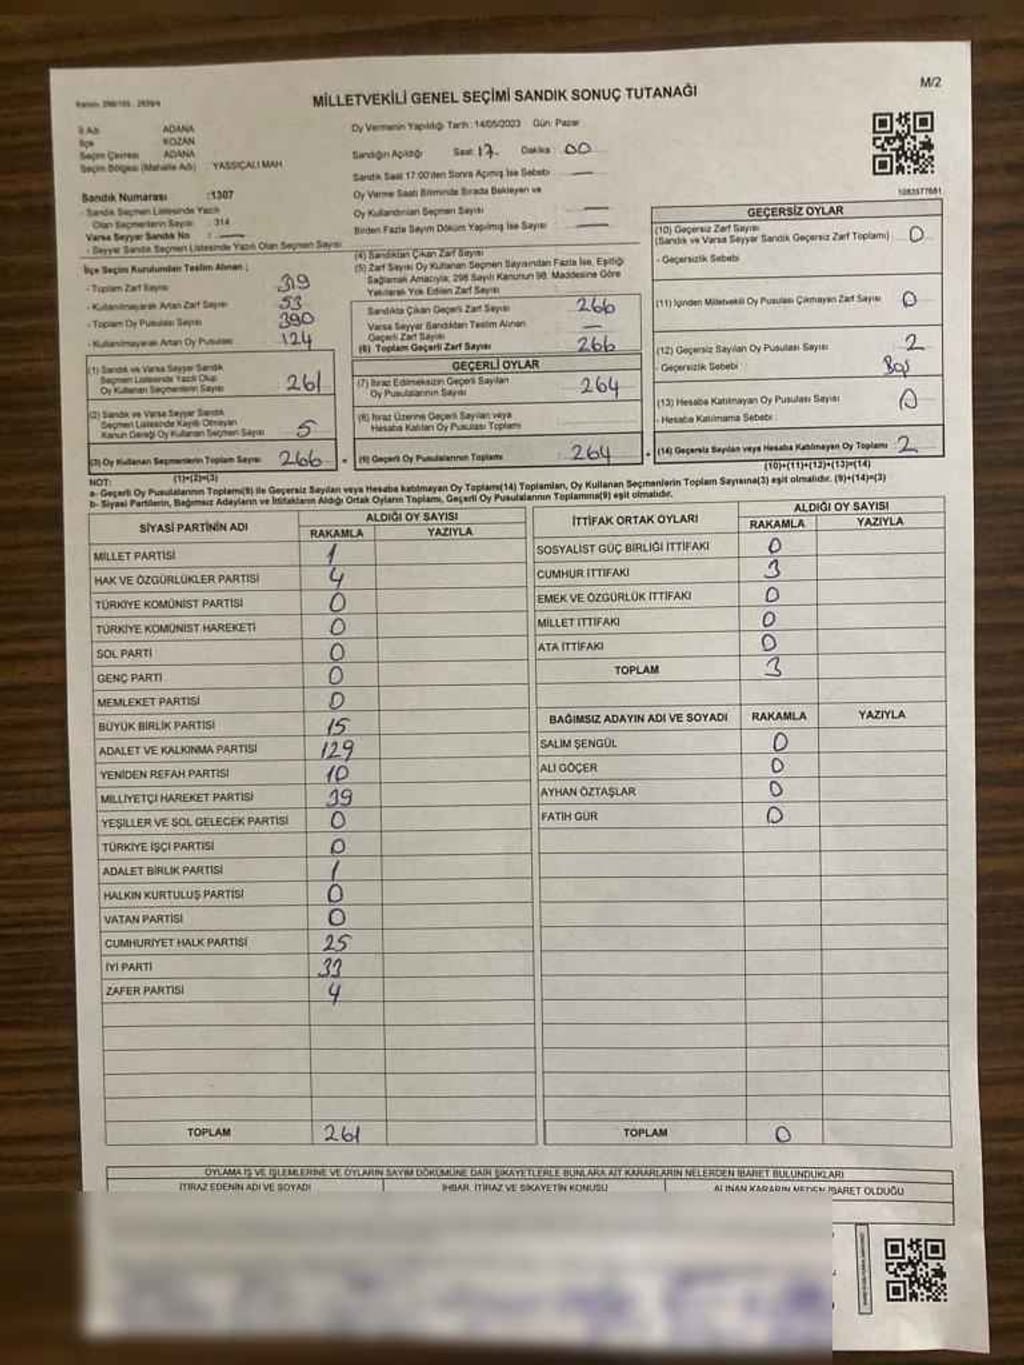 M/2
MİLLETVEKİLİ GENEL SEÇİMİ SANDIK SONUÇ TUTANAĞI
İl Adı ADANA
İlçe KOZAN
Seçim Çevresi ADANA
Seçim Bölgesi (Mahalle Adı) : YASSIÇALI MAH
Oy Vermenin Yapıldığı Tarih : 14/05/2023 Gün: Pazar
Sandığın Açıldığı Saat : 17. Dakika : 00
Sandık Saat 17:00'den Sonra Açılmış İse Sebebi —
Oy Verme Saati Bitiminde Sırada Bekleyen ve
Oy Kullandırılan Seçmen Sayısı —
Birden Fazla Sayım Döküm Yapılmış İse Sayısı —
1083577681
Sandık Numarası :1307
- Sandık Seçmen Listesinde Yazılı
Olan Seçmenlerin Sayısı : 314
Varsa Seyyar Sandık No : —
- Seyyar Sandık Seçmen Listesinde Yazılı Olan Seçmen Sayısı
İlçe Seçim Kurulundan Teslim Alınan ;
- Toplam Zarf Sayısı 319
- Kullanılmayarak Artan Zarf Sayısı 53
- Toplam Oy Pusulası Sayısı 390
- Kullanılmayarak Artan Oy Pusulası 124
(1) Sandık ve Varsa Seyyar Sandık
Seçmen Listesinde Yazılı Olup
Oy Kullanan Seçmenlerin Sayısı 261
(2) Sandık ve Varsa Seyyar Sandık
Seçmen Listesinde Kayıtlı Olmayan
Kanun Gereği Oy Kullanan Seçmen Sayısı 5
(3) Oy Kullanan Seçmenlerin Toplam Sayısı 266
(1)+(2)=(3)
(4) Sandıktan Çıkan Zarf Sayısı
(5) Zarf Sayısı Oy Kullanan Seçmen Sayısından Fazla İse, Eşitliği
Sağlamak Amacıyla, 298 Sayılı Kanunun 98. Maddesine Göre
Yakılarak Yok Edilen Zarf Sayısı
Sandıkta Çıkan Geçerli Zarf Sayısı 266
Varsa Seyyar Sandıktan Teslim Alınan
Geçerli Zarf Sayısı —
(6) Toplam Geçerli Zarf Sayısı 266
GEÇERLİ OYLAR
(7) İtiraz Edilmeksizin Geçerli Sayılan
Oy Pusulalarının Sayısı 264
(8) İtiraz Üzerine Geçerli Sayılan veya
Hesaba Katılan Oy Pusulası Toplamı
(9) Geçerli Oy Pusulalarının Toplamı 264
GEÇERSİZ OYLAR
(10) Geçersiz Zarf Sayısı
(Sandık ve Varsa Seyyar Sandık Geçersiz Zarf Toplamı) 0
- Geçersizlik Sebebi
(11) İçinden Milletvekili Oy Pusulası Çıkmayan Zarf Sayısı 0
(12) Geçersiz Sayılan Oy Pusulası Sayısı 2
- Geçersizlik Sebebi : Boş
(13) Hesaba Katılmayan Oy Pusulası Sayısı 0
- Hesaba Katılmama Sebebi :
(14) Geçersiz Sayılan veya Hesaba Katılmayan Oy Toplamı 2
(10)+(11)+(12)+(13)=(14)
NOT:
a- Geçerli Oy Pusulalarının Toplamı(9) ile Geçersiz Sayılan veya Hesaba katılmayan Oy Toplamı(14) Toplamları, Oy Kullanan Seçmenlerin Toplam Sayısına(3) eşit olmalıdır. (9)+(14)=(3)
b- Siyasi Partilerin, Bağımsız Adayların ve İttifakların Aldığı Ortak Oyların Toplamı, Geçerli Oy Pusulalarının Toplamına(9) eşit olmalıdır.
SİYASİ PARTİNİN ADI ALDIĞI OY SAYISI
RAKAMLA YAZIYLA
MİLLET PARTİSİ 1
HAK VE ÖZGÜRLÜKLER PARTİSİ 4
TÜRKİYE KOMÜNİST PARTİSİ 0
TÜRKİYE KOMÜNİST HAREKETİ 0
SOL PARTİ 0
GENÇ PARTİ 0
MEMLEKET PARTİSİ 0
BÜYÜK BİRLİK PARTİSİ 15
ADALET VE KALKINMA PARTİSİ 129
YENİDEN REFAH PARTİSİ 10
MİLLİYETÇİ HAREKET PARTİSİ 39
YEŞİLLER VE SOL GELECEK PARTİSİ 0
TÜRKİYE İŞÇİ PARTİSİ 0
ADALET BİRLİK PARTİSİ 1
HALKIN KURTULUŞ PARTİSİ 0
VATAN PARTİSİ 0
CUMHURİYET HALK PARTİSİ 25
İYİ PARTİ 33
ZAFER PARTİSİ 4
TOPLAM 261
İTTİFAK ORTAK OYLARI ALDIĞI OY SAYISI
RAKAMLA YAZIYLA
SOSYALİST GÜÇ BİRLİĞİ İTTİFAKI 0
CUMHUR İTTİFAKI 3
EMEK VE ÖZGÜRLÜK İTTİFAKI 0
MİLLET İTTİFAKI 0
ATA İTTİFAKI 0
TOPLAM 3
BAĞIMSIZ ADAYIN ADI VE SOYADI RAKAMLA YAZIYLA
SALİM ŞENGÜL 0
ALİ GÖÇER 0
AYHAN ÖZTAŞLAR 0
FATİH GÜR 0
TOPLAM 0
OYLAMA İŞ VE İŞLEMLERİNE VE OYLARIN SAYIM DÖKÜMÜNE DAİR ŞİKAYETLERLE BUNLARA AİT KARARLARIN NELERDEN İBARET BULUNDUKLARI
İTİRAZ EDENİN ADI VE SOYADI İHBAR, İTİRAZ VE ŞİKAYETİN KONUSU ALINAN KARARIN NEDEN İBARET OLDUĞU